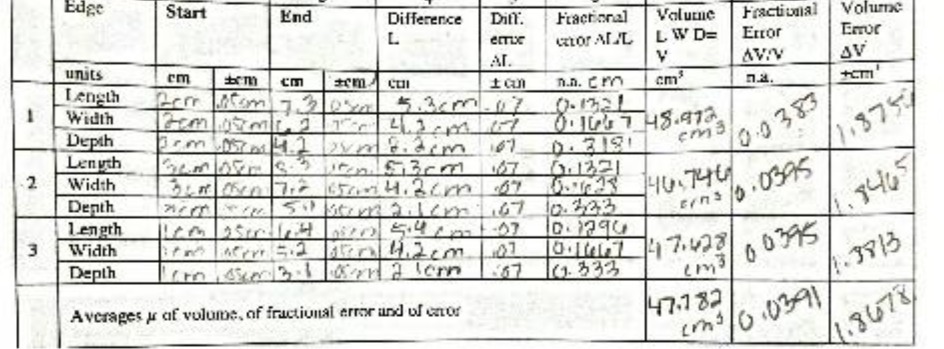 Edge Start End Difference L Diff. error ΔL Fractional error ΔL/L Volume L W D= V Fractional Error ΔV/V Volume Error ΔV
units cm ±cm cm ±cm cm ± cm n.a. cm cm³ n.a. ±cm³
1
Length 2cm .05cm 7.3 .05cm 5.3cm .07 0.1321
Width 2cm .05cm 6.2 4.2cm .07 0.1667 48.972 cm³ 0.0383
Depth 2cm .05cm 4.2 .05cm 2.2cm .07 0.3181
2
Length 3cm .05cm 8.3 5.3cm .07 0.1321
Width 3cm .05cm 7.2 .05cm 4.2cm .07 46.746 cm³ 0.0395 1.8465
Depth 5.1 .05cm 2.1cm .07 0.333
3
Length 1cm .05cm 6.4 .05cm 5.4cm .07 0.1296
Width 1cm .05cm 5.2 .05cm 4.2cm .07 0.1667 47.628 cm³ 0.0395
Depth 1cm .05cm 3.1 .05cm 2.1cm .07 0.333
Averages μ of volume, of fractional error and of error 47.782 cm³ 0.0391 1.8678